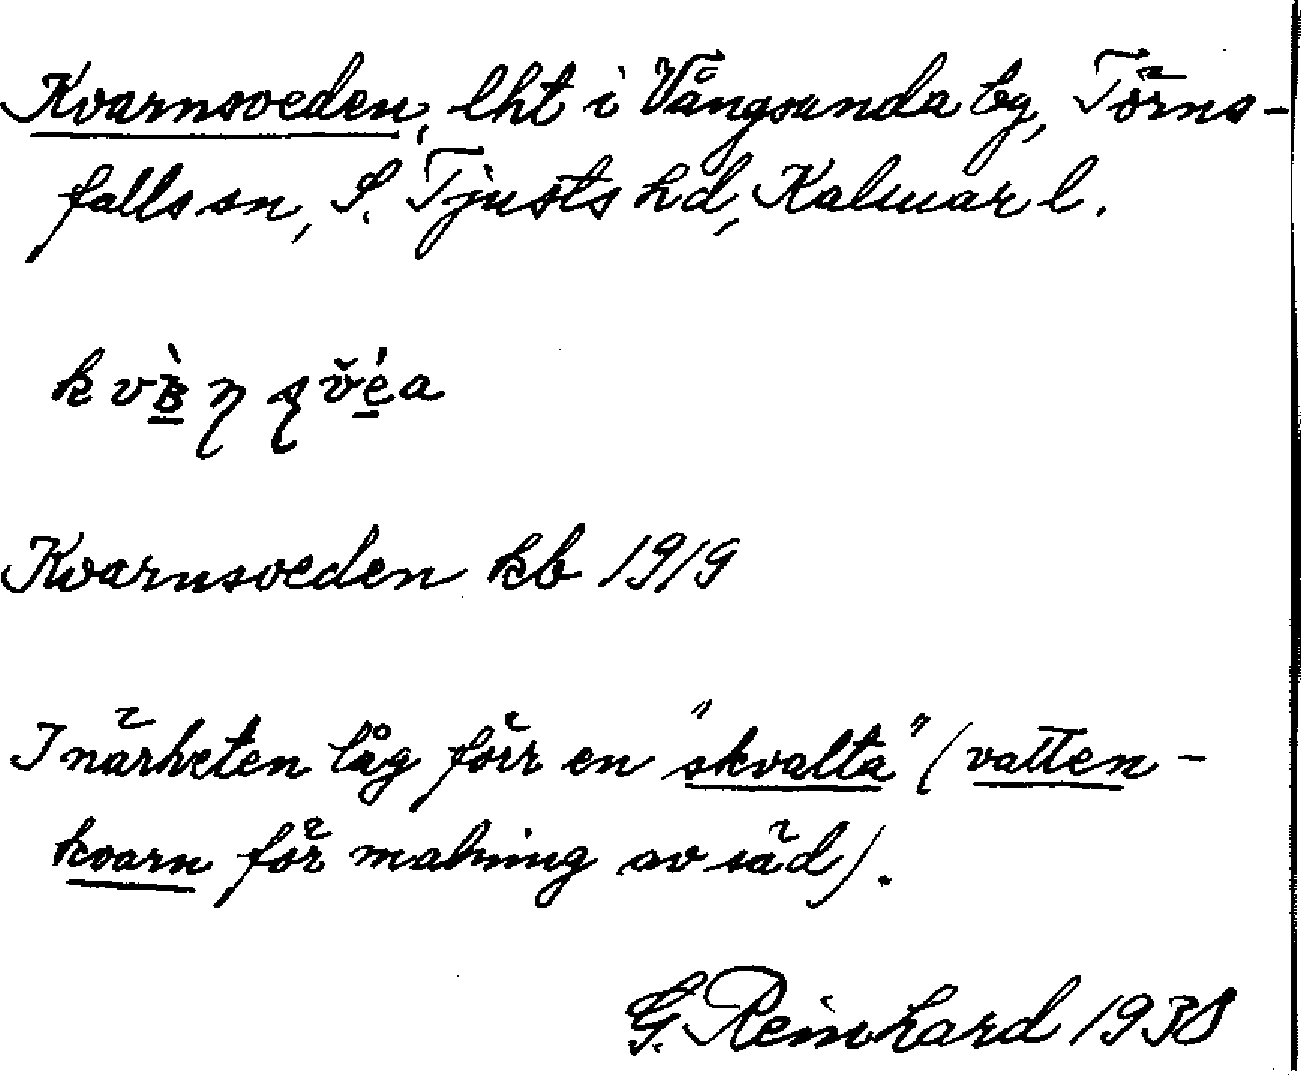 Kvarnsveden, lht i Vångsunda by, Törns-
falls sn, S. Tjusts hd, Kalmar l.
Kvarnsveden kb 1919
I närheten låg förr en "skvalta" (vatten-
kvarn för malning av säd).
G. Reinhard 1938